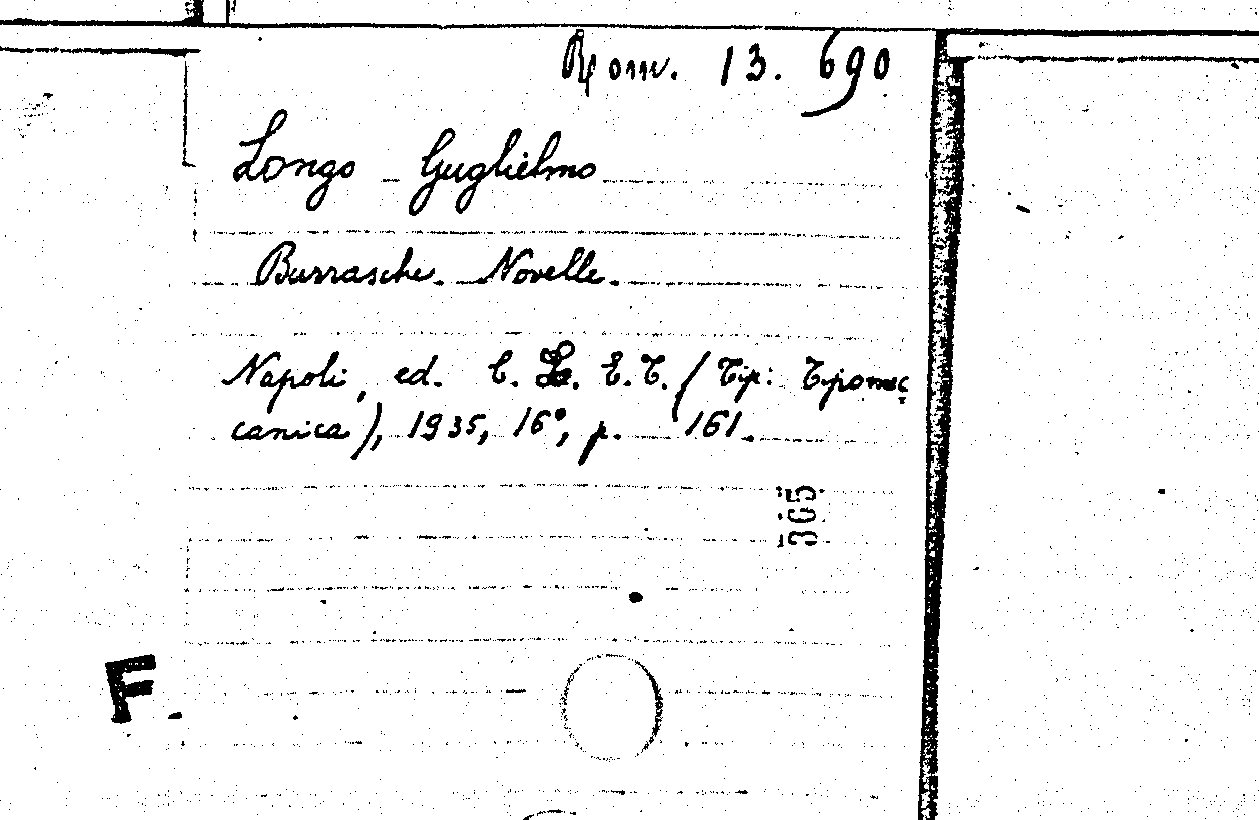 Rom. 13. 690
Longo - Guglielmo
Burrasche. Novelle.
Napoli, ed. C. L. E. T. (Tip: Tipomec
canica), 1935, 16°, p. 161.
365
F.